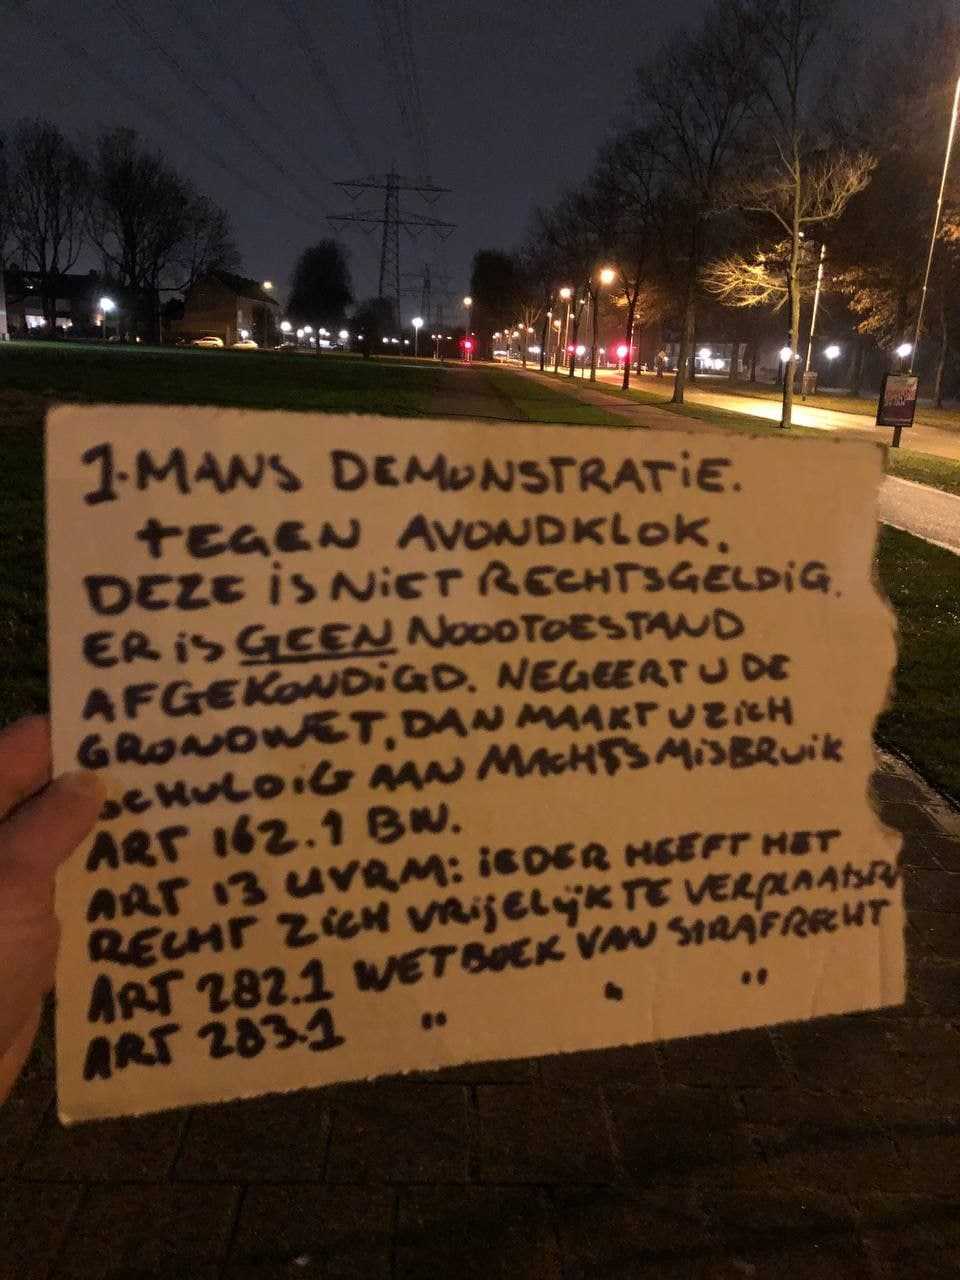 1-MANS DEMONSTRATIE.
TEGEN AVONDKLOK.
DEZE IS NIET RECHTSGELDIG.
ER IS GEEN NOODTOESTAND
AFGEKONDIGD. NEGEERT U DE
GRONDWET, DAN MAAKT U ZICH
SCHULDIG AAN MACHTSMISBRUIK
ART 162.1 BW.
ART 13 UVRM: IEDER HEEFT HET
RECHT ZICH VRIJELIJK TE VERPLAATSEN
ART 282.1 WETBOEK VAN STRAFRECHT
ART 283.1 " " "